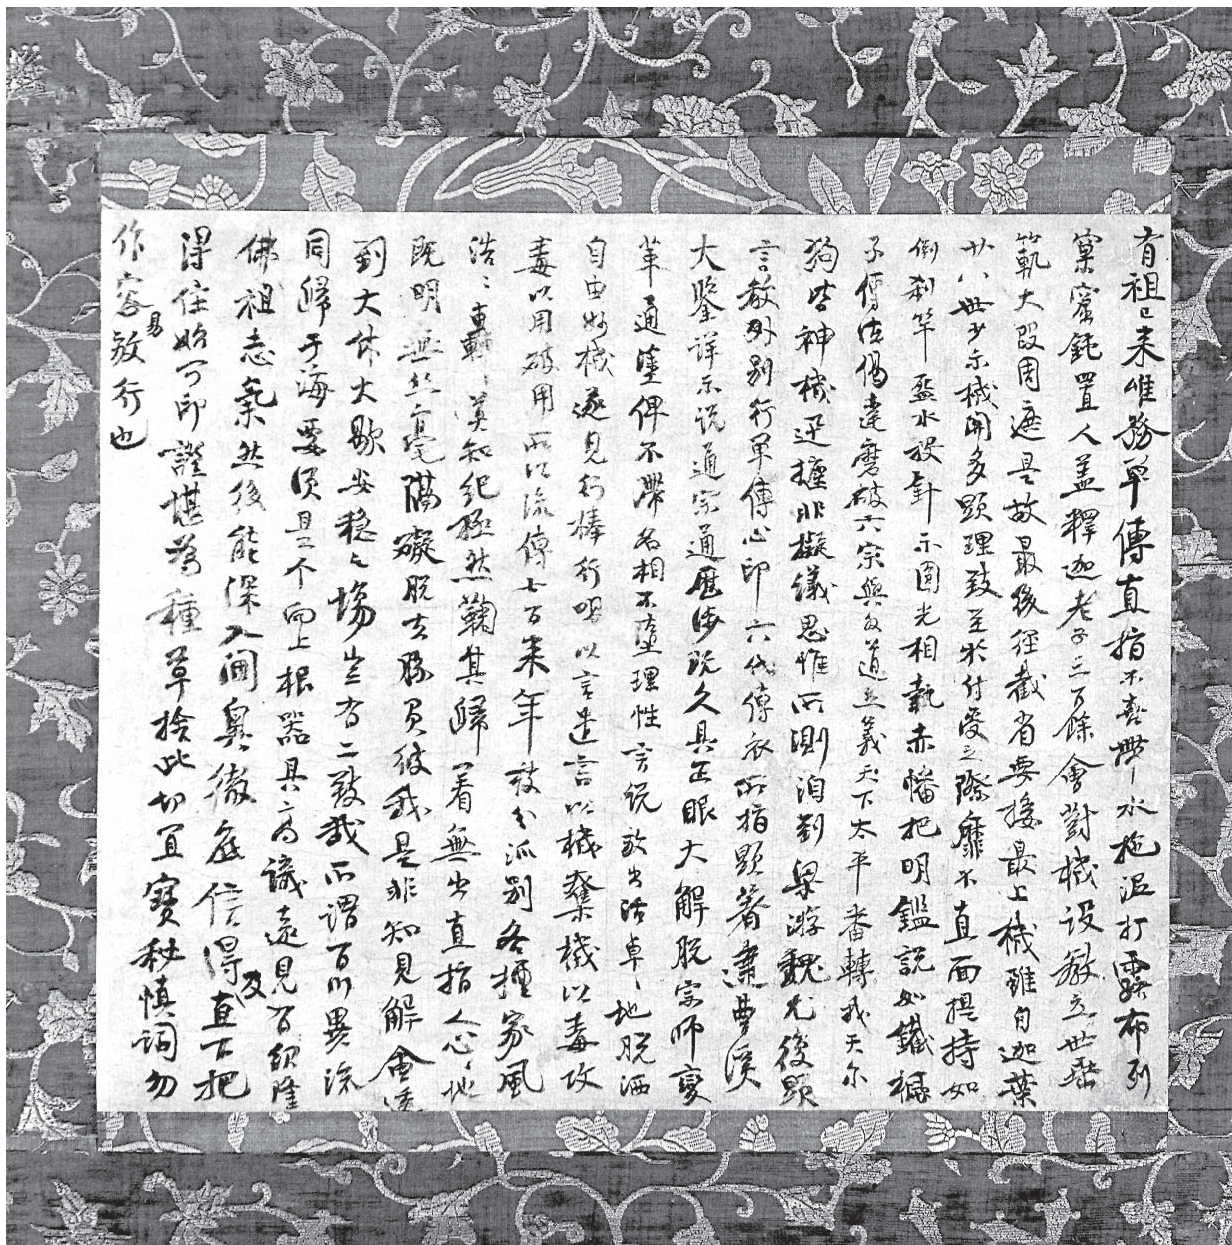 有祖已來唯務單傳直指不喜帶水拖泥打露布列
窠窟鈍置人蓋釋迦老子三百餘會對機設教立世垂
範大段周遮是故最後徑截省要接最上機雖自迦葉
廿八世少示機關多顯理致至於付受之際靡不直面提持如
倒刹竿盋水投針示圓光相執赤幡把明鑑說如鐵橛
子傳法偈達磨破六宗與外道立義天下太平番轉我天尔
狗皆神機迅捷非擬議思惟所測洎到梁游魏尤復顯
言教外別行單傳心印六代傳衣所指顯著逮曹溪
大鑒詳示說通宗通歷涉既久具正眼大解脫宗師變
革通塗俾不滯名相不墮理性言說放出活卓〻地脫洒
自由妙機遂見行棒行喝以言遣言以機奪機以毒攻
毒以用破用所以流傳七百來年枝分派別各擅家風
浩〻轟〻莫知紀極然鞠其歸著無出直指人心〻地
既明無絲毫隔礙脫去勝負彼我是非知見解會透
到大休大歇安穩之場豈有二致哉所謂百川異流
同歸于海要須是个向上根器具高識遠見有紹隆
佛祖志氣然後能深入閫奧徹底信得及直下把
得住始可印證堪為種草捨此切宜寶秘慎詞勿
作容易放行也